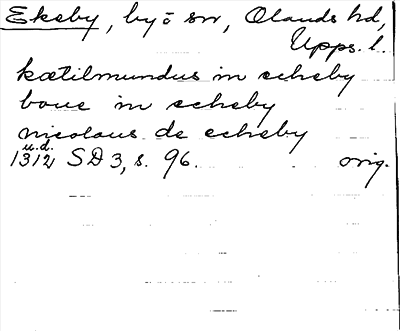 Ekeby, by o sn, Olands hd,
Upps. l.
kætilmundus in ekeby
boue in ekeby
nicolaus de ekeby
u.d.
1312 SD 3, s. 96. orig.